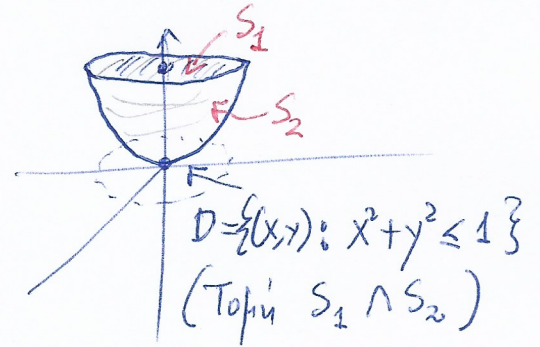 S₁
S₂
D={(x,y): x²+y² ≤ 1}
(Τομή S₁ ∧ S₂)